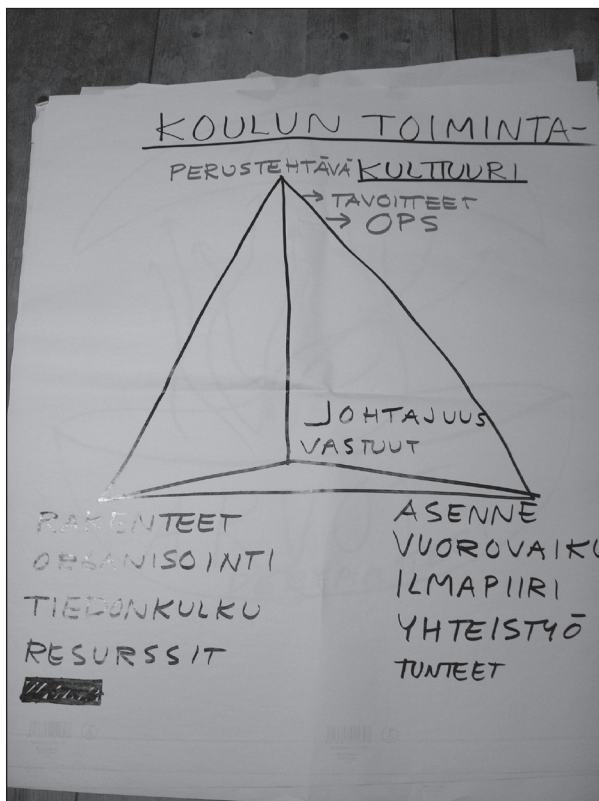 KOULUN TOIMINTA-
PERUSTEHTÄVÄ KULTTUURI
→ TAVOITTEET
→ OPS
JOHTAJUUS
VASTUUT
RAKENTEET
ORGANISOINTI
TIEDONKULKU
RESURSSIT
ASENNE
VUOROVAIKU
ILMAPIIRI
YHTEISTYÖ
TUNTEET